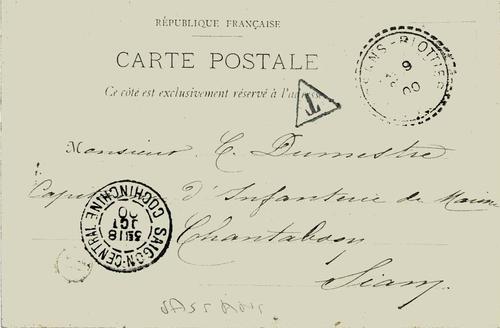 RÉPUBLIQUE FRANÇAISE
CARTE POSTALE
Ce côté est exclusivement réservé à l'adresse
T
9
00
Monsieur C. Dumestre
d'Infanterie de Marine
Chantaboon
Siam
SAIGON-CENTRAL
COCHINCHINE